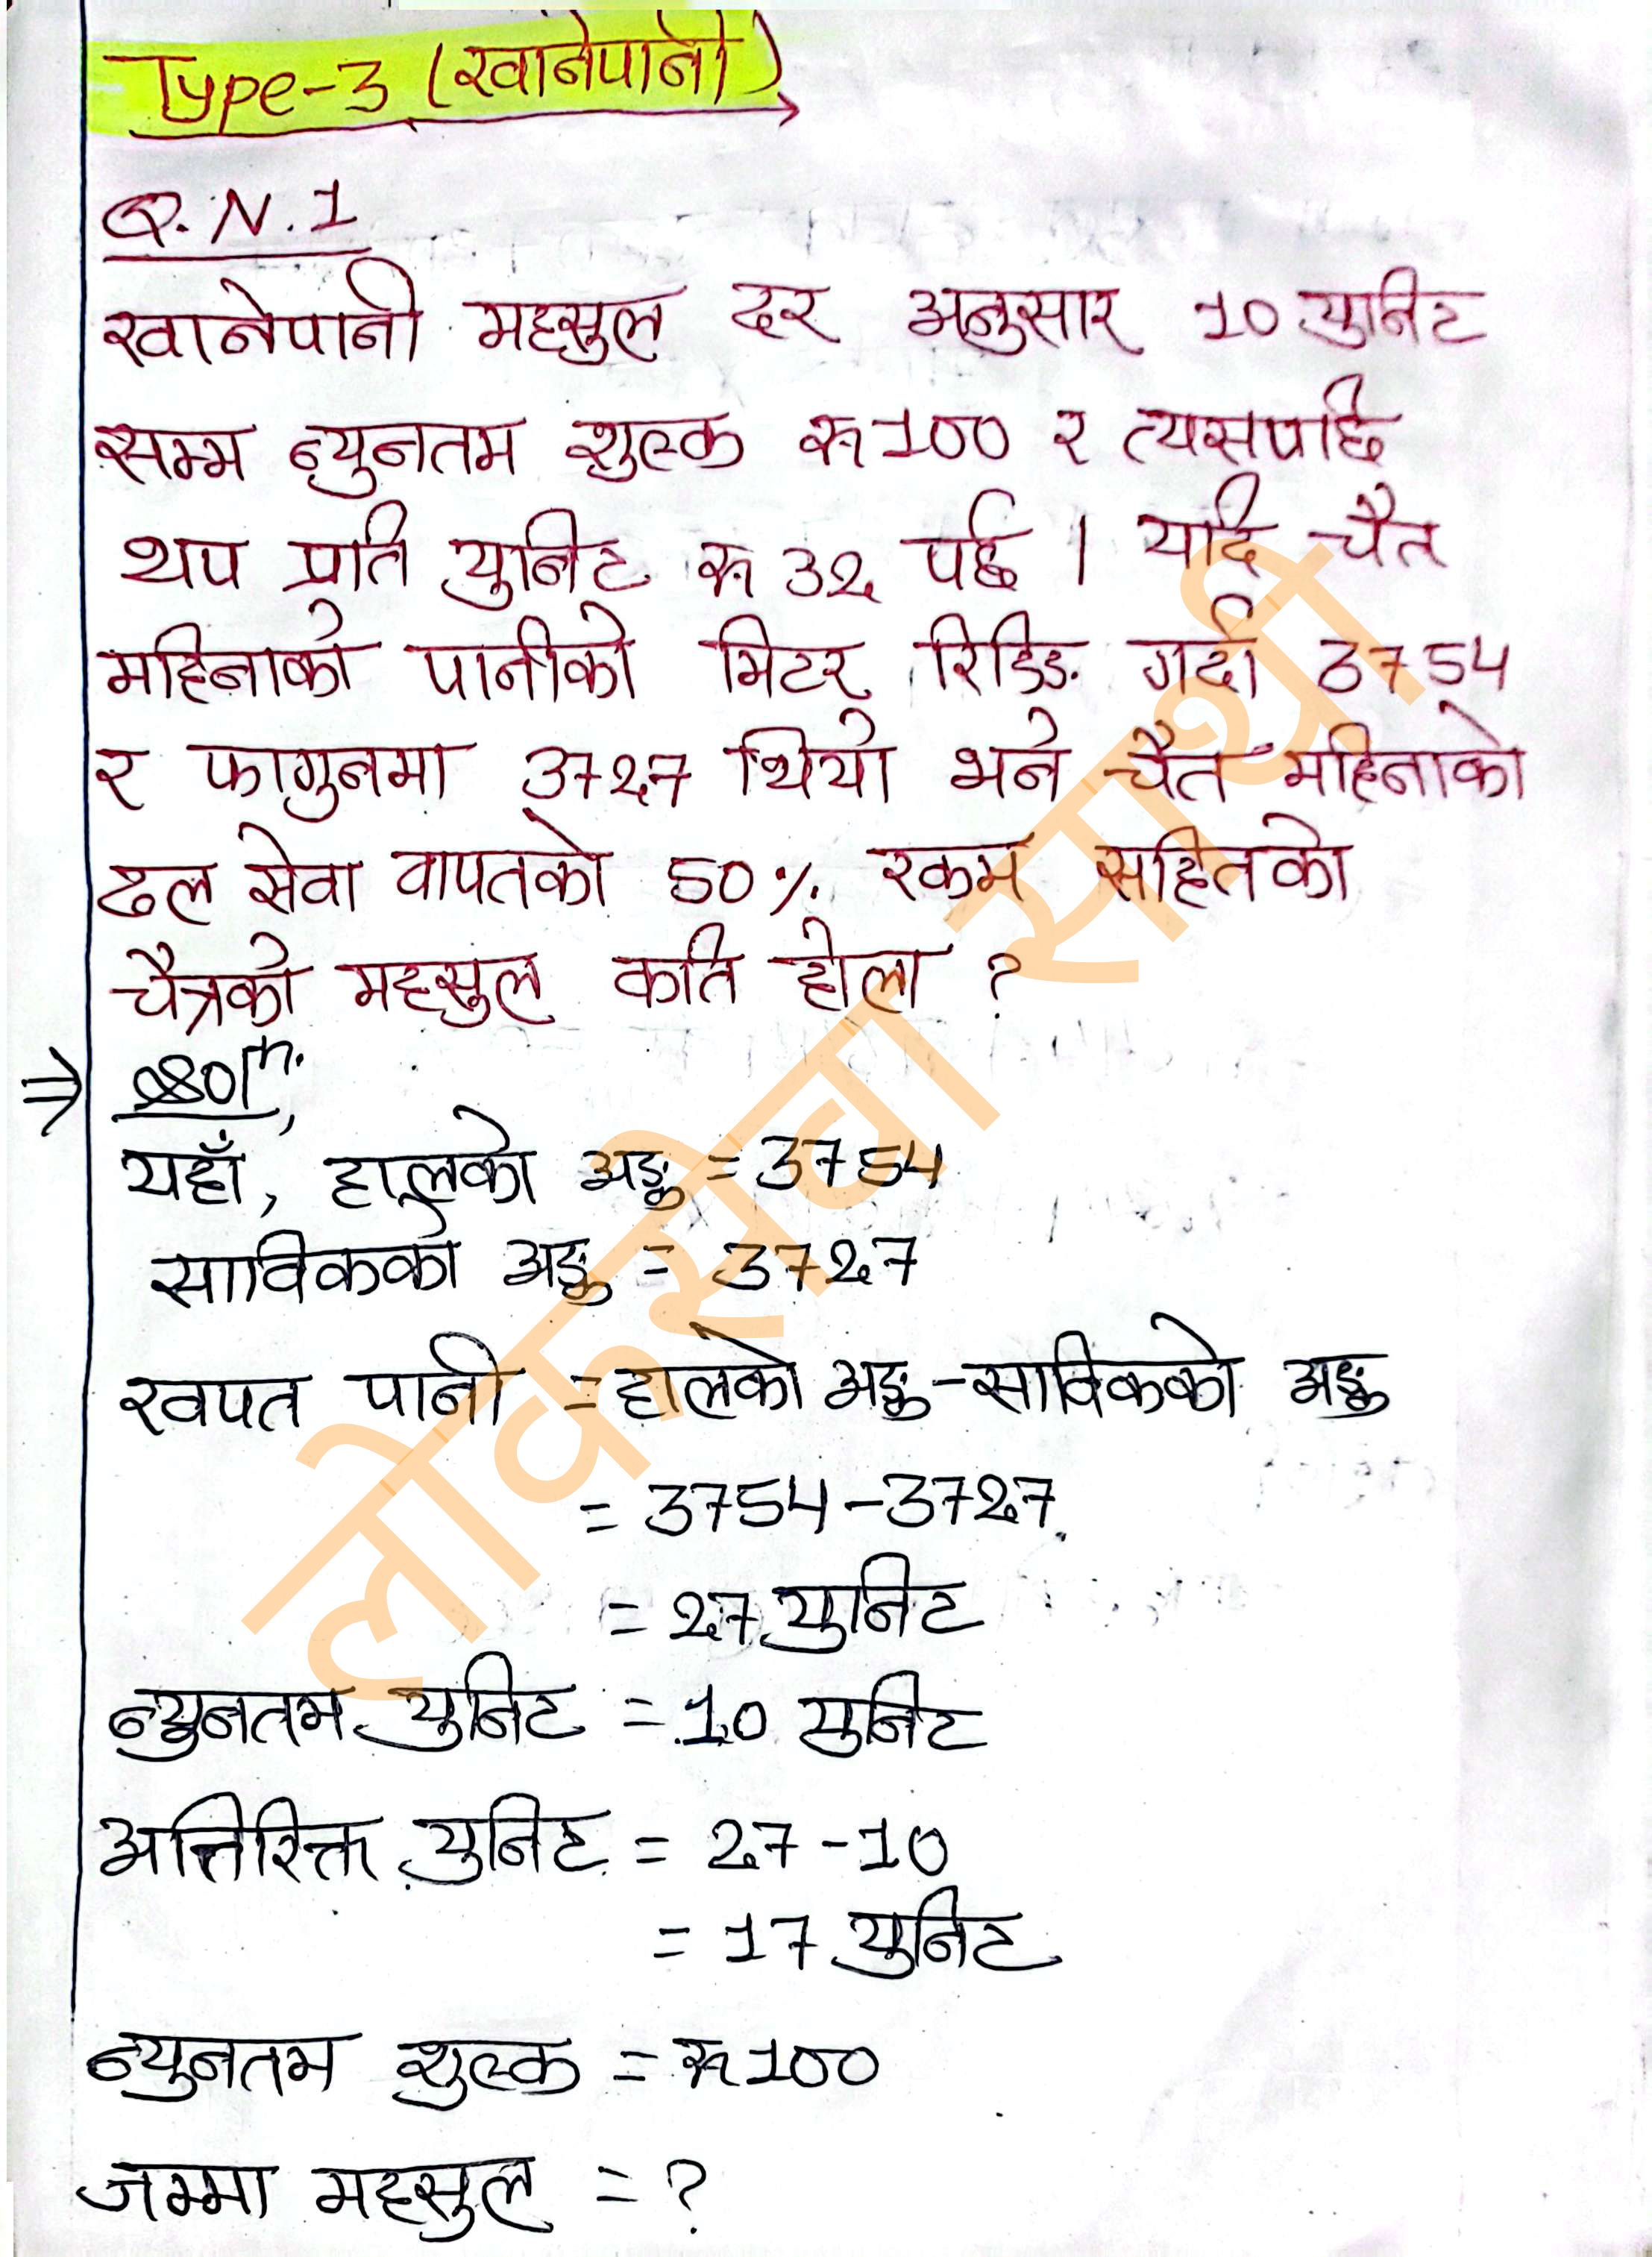 Type-3 (खानेपानी)
Q.N.1
खानेपानी महसुल दर अनुसार 10 युनिट
सम्म न्युनतम शुल्क रू 100 र त्यसपछि
थप प्रति युनिट रू 32 पर्छ । यदि चैत
महिनाको पानीको मिटर रिडिङ गर्दा 3754
र फागुनमा 3727 थियो भने चैत महिनाको
ढल सेवा वापतको 50% रकम सहितको
चैत्रको महसुल कति होला ?
⇒ Solⁿ.,
यहाँ, हालको अङ्क = 3754
साविकको अङ्क = 3727
खपत पानी = हालको अङ्क - साविकको अङ्क
= 3754 - 3727
= 27 युनिट
न्युनतम युनिट = 10 युनिट
अतिरिक्त युनिट = 27 - 10
= 17 युनिट
न्युनतम शुल्क = रू 100
जम्मा महसुल = ?
लोकसेवा साथी